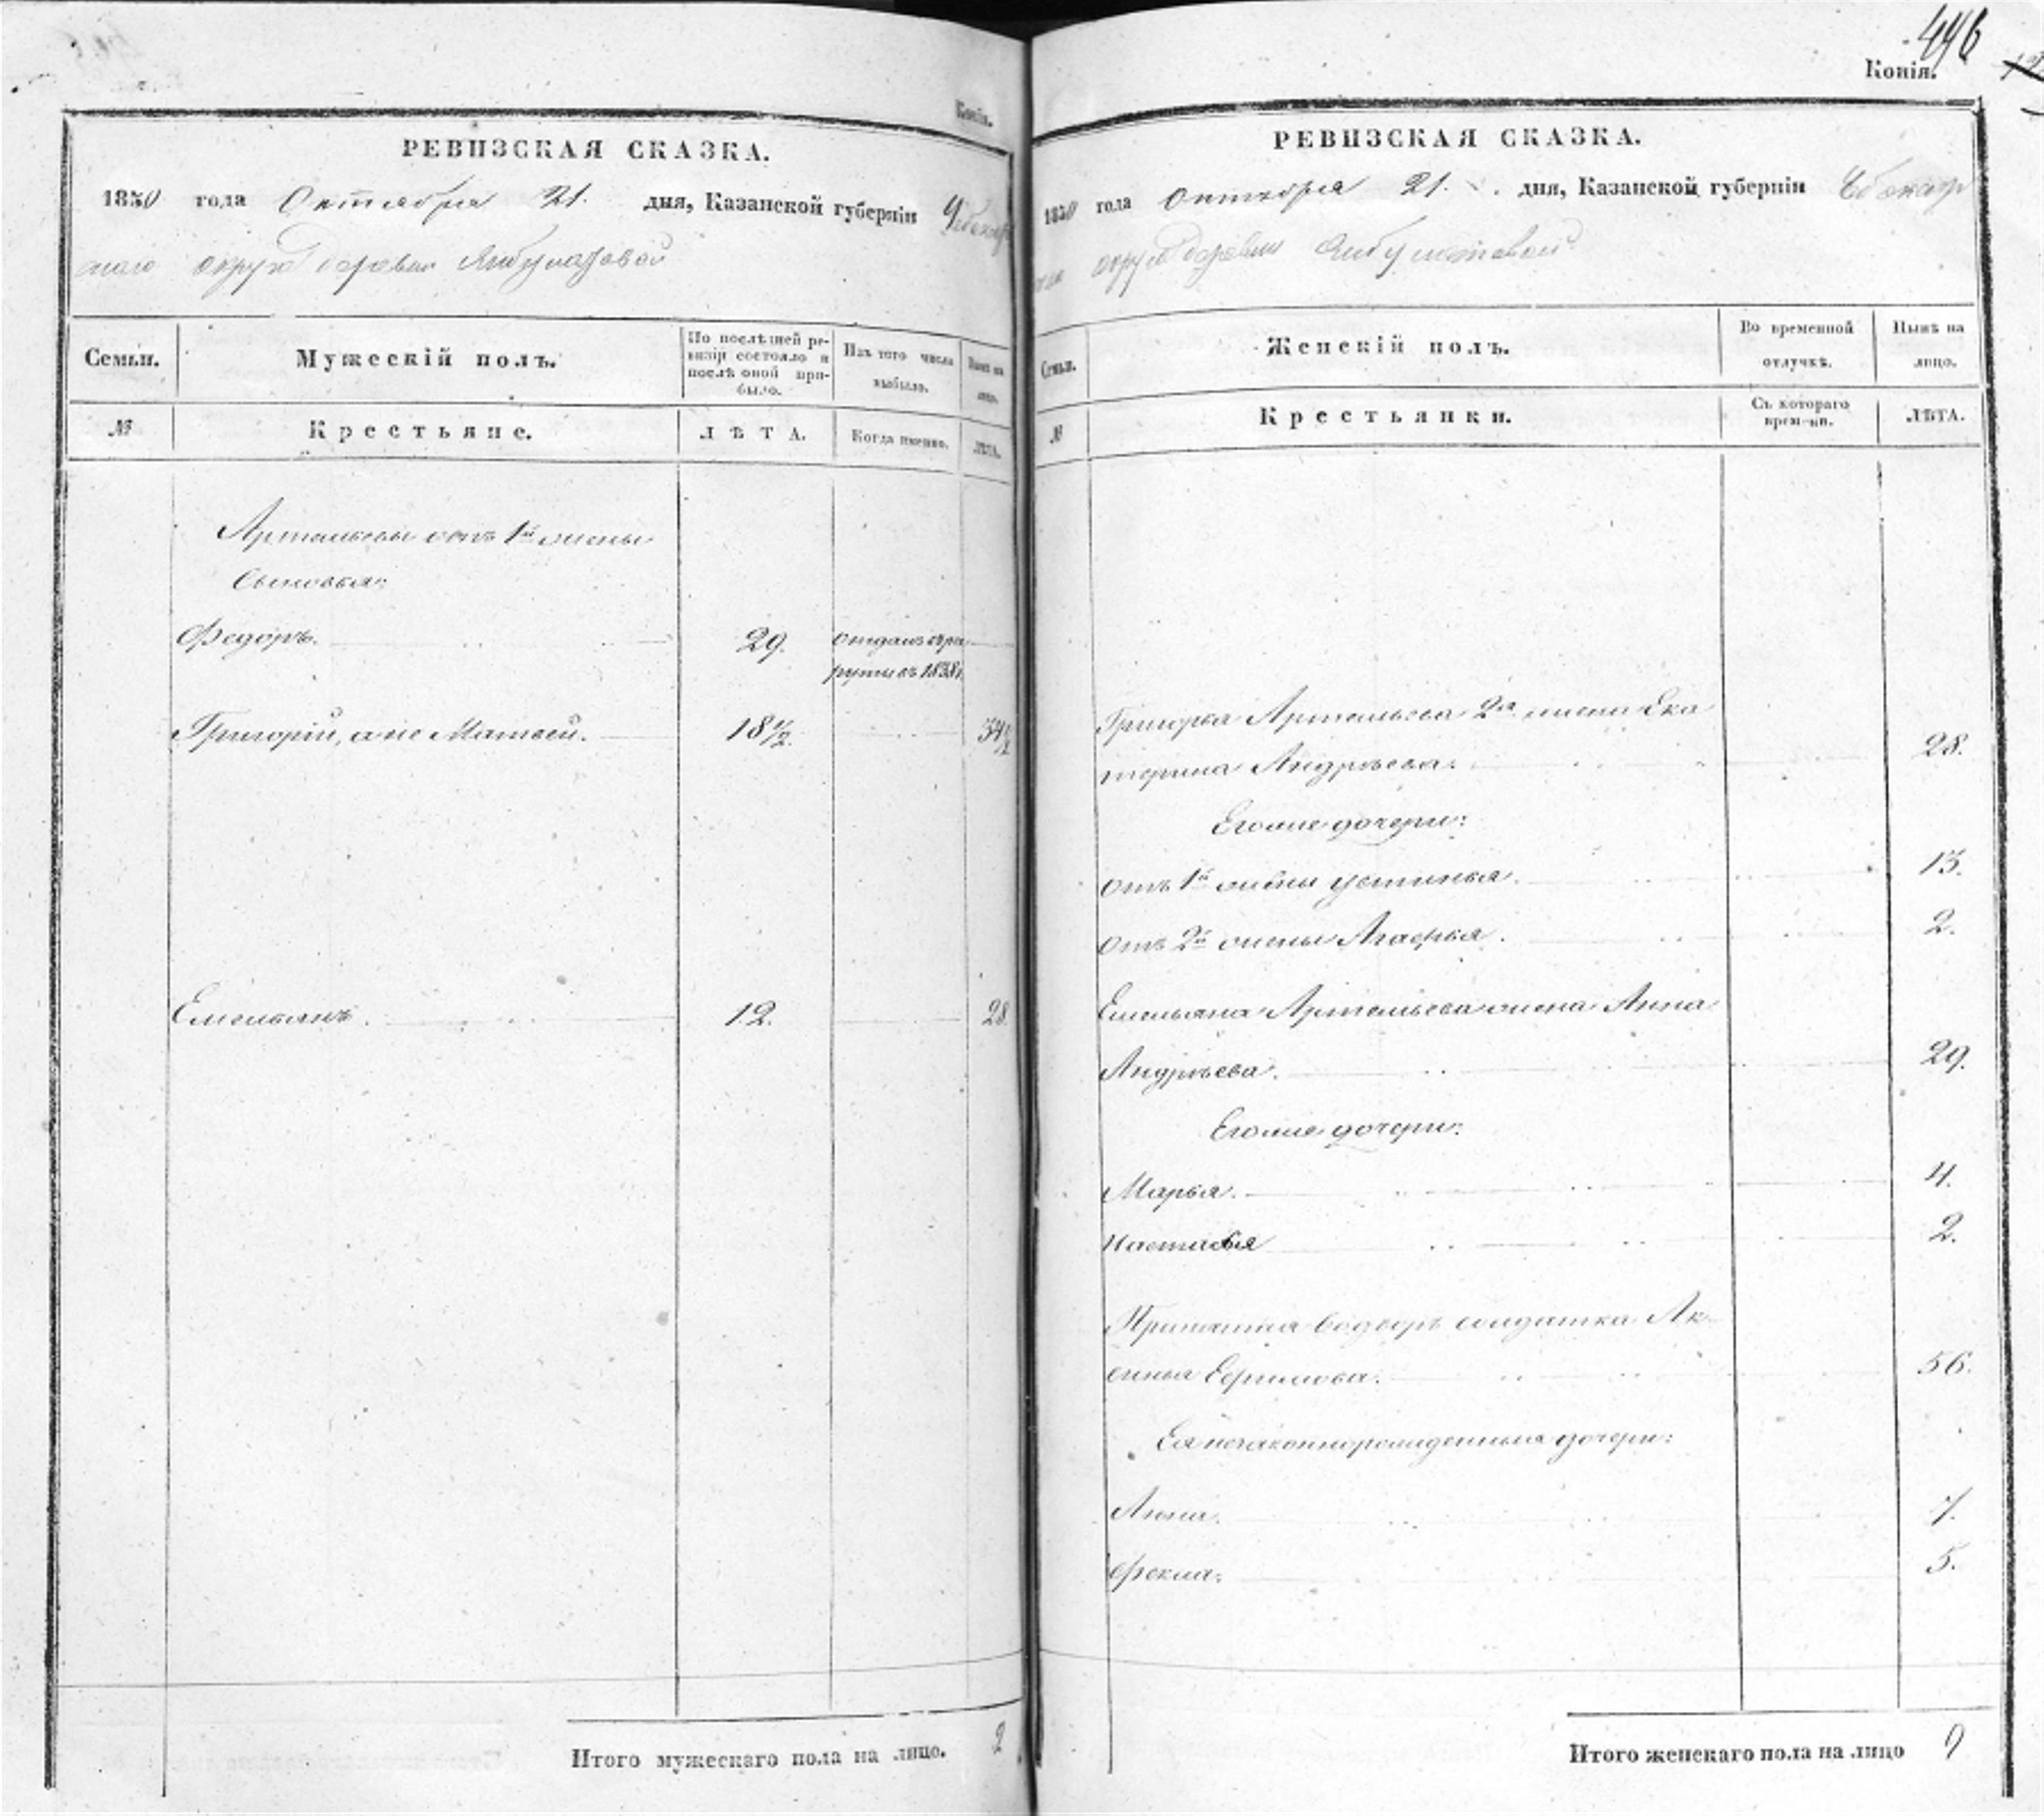 Копія.
РЕВИЗСКАЯ СКАЗКА.
1850 года Октября 21. дня, Казанской губерніи Чебоксар
скаго округа деревни
Семьи.
Мужескій полъ.
По послѣдней ре-
визіи состояло и
послѣ оной при-
было.
Изъ того числа
выбыло.
Нынѣ на
лицо.
№
Крестьяне.
ЛѢТА.
Когда именно.
ЛѢТА.
Артемьевы отъ 1й жены
Сыновья:
Федоръ. 29. отданъ въ рек
руты въ 1838г
Григорій, а не Матвей. 18 1/2. 34 1/2
Емельянъ. 12. 28
Итого мужескаго пола на лицо. 2
446
Копія.
РЕВИЗСКАЯ СКАЗКА.
1850 года Октября 21. дня, Казанской губерніи Чебоксар
скаго округа деревни
Семьи.
Женскій полъ.
Во временной
отлучкѣ.
Нынѣ на
лицо.
№
Крестьянки.
Съ котораго
времени.
ЛѢТА.
Григорья Артемьева 2я жена Ека
терина Андреѣва. 28.
Его же дочери:
отъ 1й жены Устинья. 13.
отъ 2й жены Агафья. 2.
Емельяна Артемьева жена Анна
Андреѣва. 29.
Его же дочери:
Марья. 4.
Настасья 2.
Принятая во дворъ солдатка Ак-
синья Ефимова. 56.
Ея незаконнорожденныя дочери:
Анна. 7.
Фекла. 5.
Итого женскаго пола на лицо 9